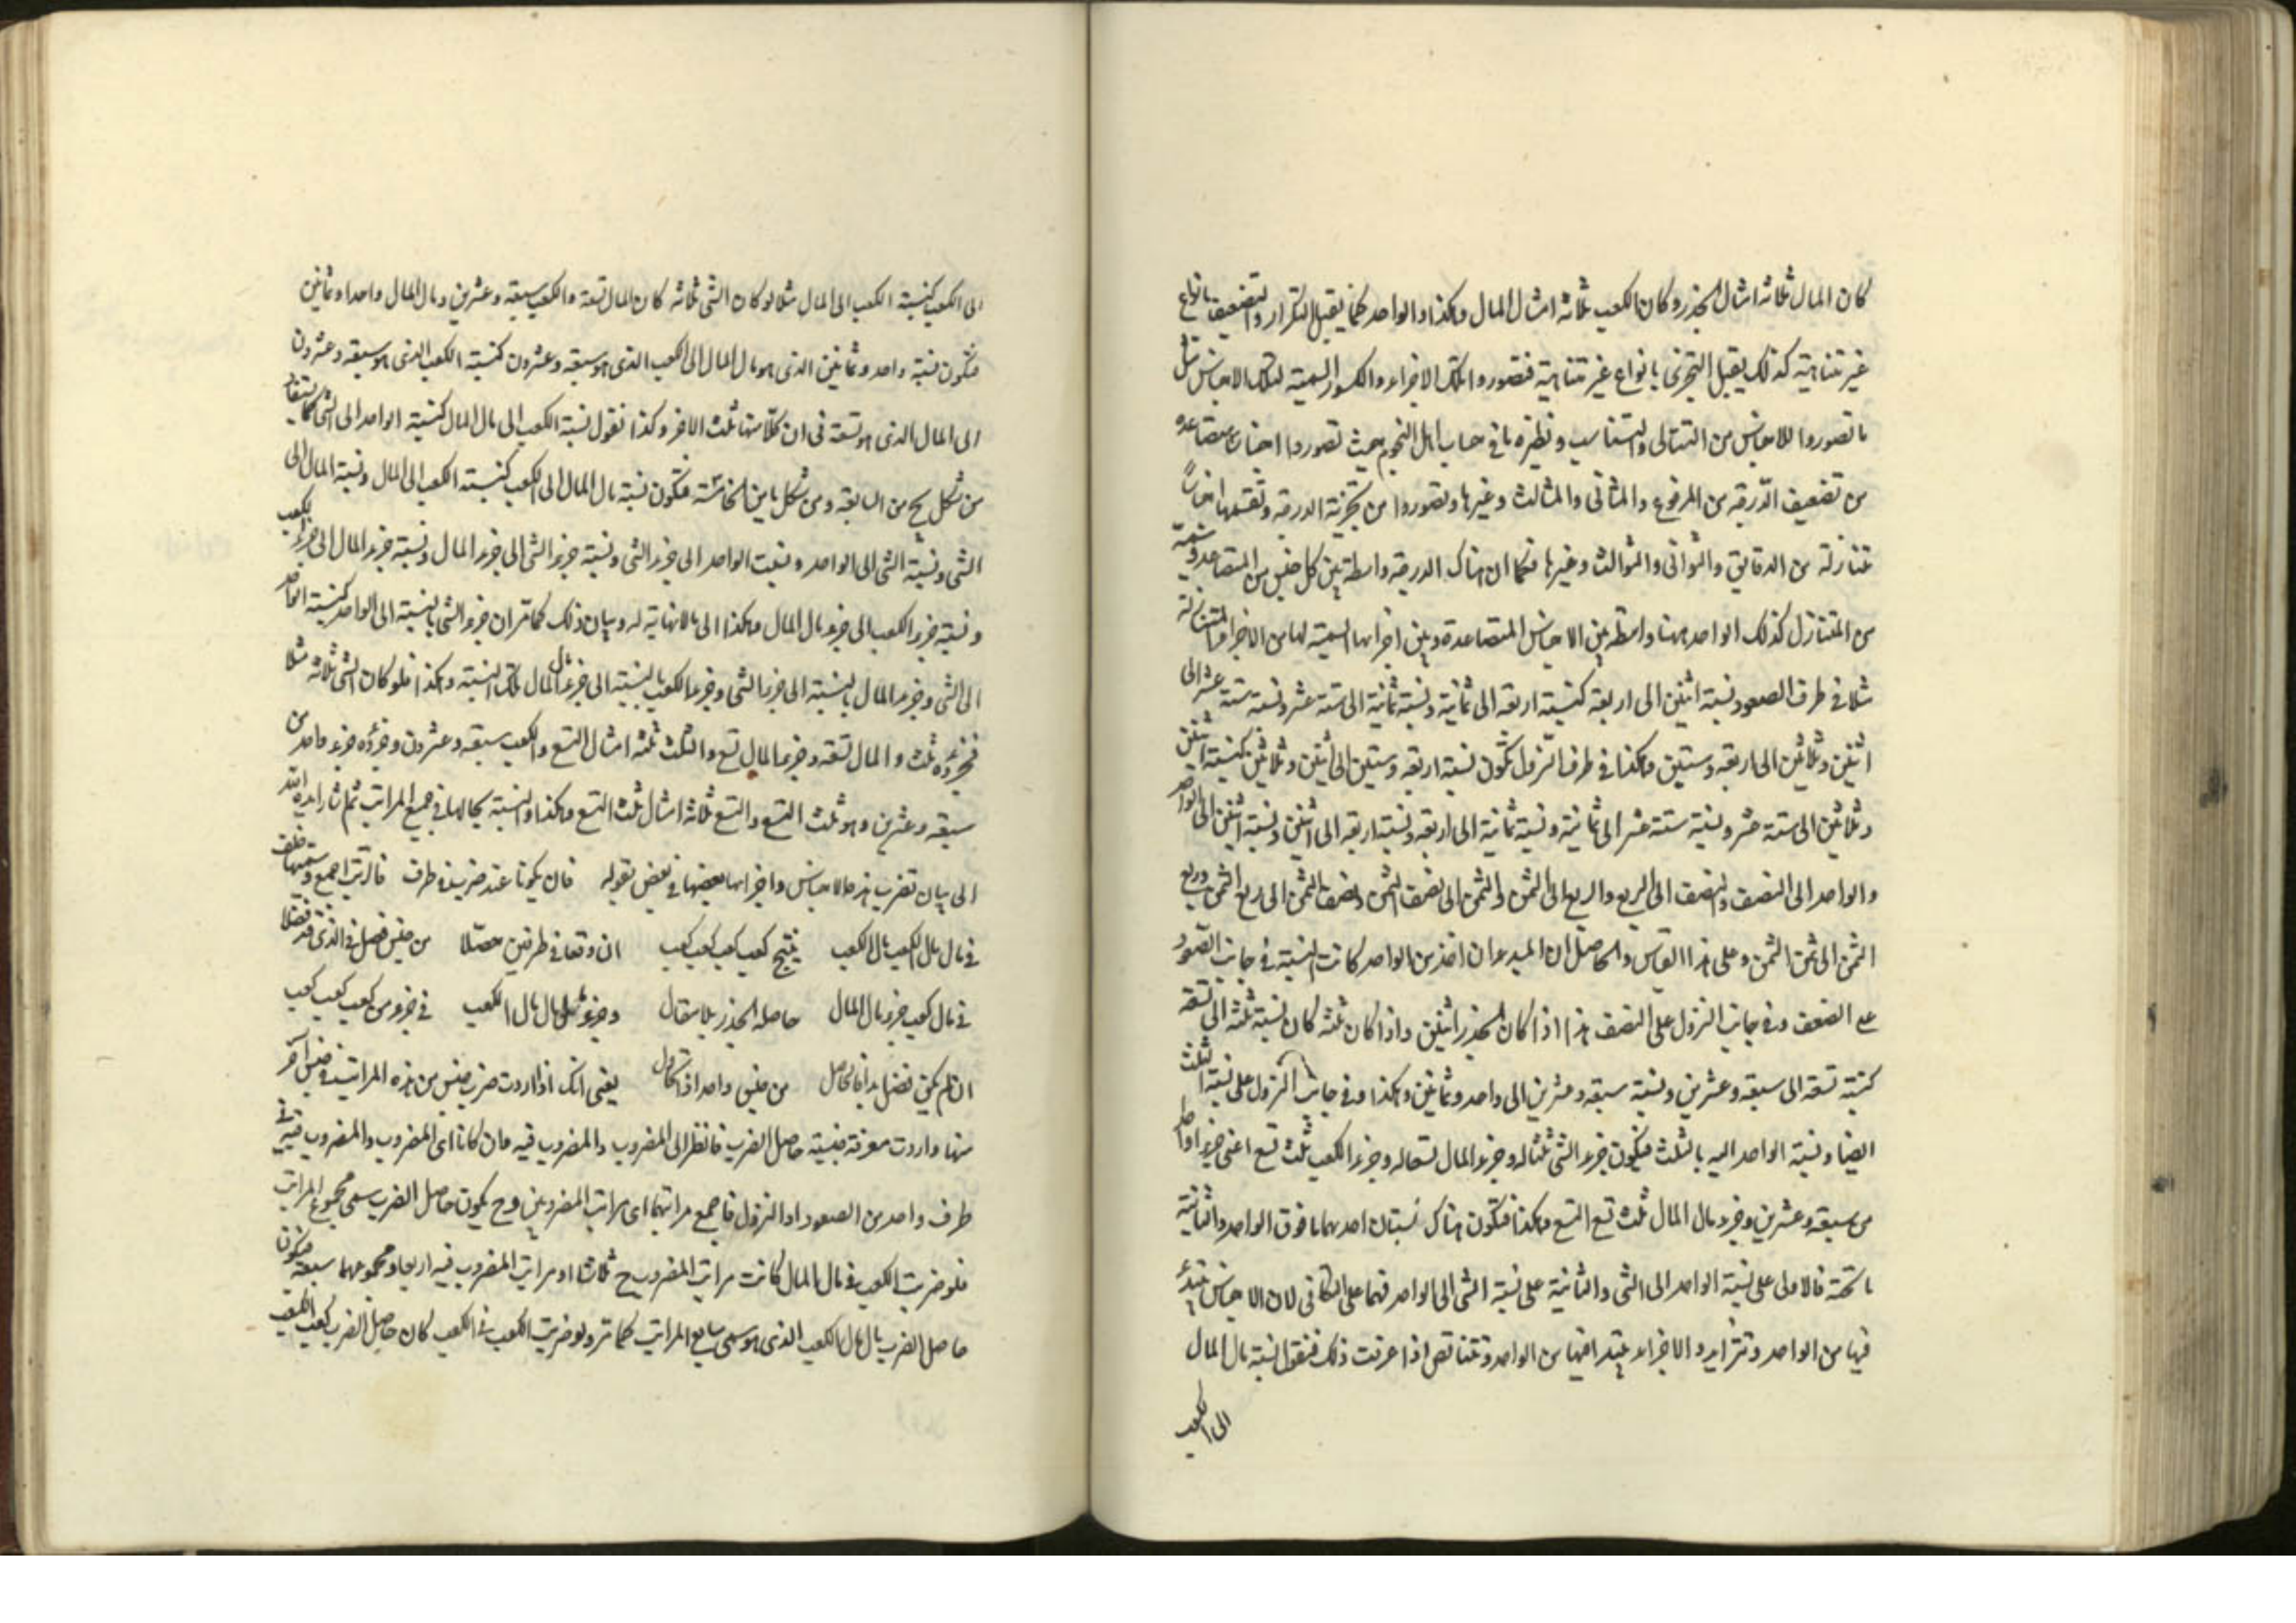 كان المال ثلاثة امثال الجذر وكان الكعب ثلاثة امثال المال وهكذا والواحد كما يقبل التكرار والتضعيف بانواع
غير متناهية كذلك يقبل التجزى بانواع غير متناهية فتصوروا تلك الاجزاء والكسور السمية لتلك الاجناس مثل
ما تصوروا للاجناس من التتالى والتناسب ونظيره ما فى حساب اهل النجوم بحيث تصوروا اجناسا متصاعده
من تضعيف الدرجة من المرفوع والمثانى والمثالث وغيرها وتصوروا من تجزئة الدرجة وتقسيمها اجناسا
متنازلة من الدقايق والثوانى والثوالث وغيرها فكما ان هناك الدرجة واسطة بين كل جنس من المتصاعد وسمية
من المتنازل كذلك الواحد ههنا واسطة بين الاجناس المتصاعدة وبين اجزائها السمية لها من الاجزاء المتنازلة
مثلا فى طرف الصعود نسبة اثنين الى اربعة كنسبة اربعة الى ثمانية ونسبة ثمانية الى ستة عشر ونسبة ستة عشر الى
اثنين وثلاثين الى اربعة وستين وهكذا فى طرف النزول تكون نسبة اربعة وستين الى اثنين وثلاثين كنسبة اثنين
وثلاثين الى ستة عشر ونسبة ستة عشر الى ثمانية ونسبة ثمانية الى اربعة ونسبة اربعة الى اثنين ونسبة اثنين الى الواحد
والواحد الى النصف والنصف الى الربع والربع الى الثمن والثمن الى نصف الثمن ونصف الثمن الى ربع الثمن وربع
الثمن الى ثمن الثمن وعلى هذا القياس والحاصل ان المبدء ان اخذ من الواحد كانت النسبة فى جانب الصعود
على الضعف وفى جانب النزول على النصف هذا اذا كان الجذر اثنين واذا كان ثلثة كان نسبة ثلثة الى تسعة
كنسبة تسعة الى سبعة وعشرين ونسبة سبعة وعشرين الى واحد وثمانين وهكذا وفى جانب النزول على نسبة الثلث
ايضا ونسبة الواحد اليه بالثلث فيكون جزء الشى ثلثا له وجزء المال تسعا له وجزء الكعب ثلث تسع اعنى جزءا واحدا
من سبعة وعشرين وجزء مال المال ثلث تسع التسع وهكذا فتكون هناك نسبتان احديهما ما فوق الواحد والثانية
ما تحته فالاولى على نسبة الواحد الى الشى والثانية على نسبة الشى الى الواحد فهما على التكافى لان الاجناس يبتدء
فيها من الواحد وتتزايد والاجزاء يبتدء فيها من الواحد وتتناقص اذا عرفت ذلك فنقول نسبة مال المال
الى الكعب
الى الكعب كنسبة الكعب الى المال مثلا لو كان الشى ثلاثة كان المال تسعة والكعب سبعة وعشرين ومال المال واحدا وثمانين
فتكون نسبة واحد وثمانين الذى هو مال المال الى الكعب الذى هو سبعة وعشرون كنسبة الكعب الذى هو سبعة وعشرون
الى المال الذى هو تسعة فى ان كلا منها ثلث الاخر وكذا نقول نسبة الكعب الى مال المال كنسبة الواحد الى الشى كما يستفاد
من شكل يح من السابعة ومن شكل يا من الخامسة فتكون نسبة مال المال الى الكعب كنسبة الكعب الى المال ونسبة المال الى
الشى ونسبة الشى الى الواحد ونسبت الواحد الى جزء الشى ونسبة جزء الشى الى جزء المال ونسبة جزء المال الى جزء الكعب
ونسبة جزء الكعب الى جزء مال المال وهكذا الى ما لا نهاية له وبيان ذلك كما مر ان جزء الشى بالنسبة الى الواحد كنسبة الواحد
الى الشى وجزء المال بالنسبة الى جزء الشى وجزء الكعب بالنسبة الى جزء مال المال تلك النسبة وهكذا فلو كان الشى ثلاثة مثلا
فجزؤه ثلث والمال تسعة وجزء المال تسع والثلث ثلثة امثال التسع والكعب سبعة وعشرون وجزؤه جزء واحد من
سبعة وعشرين وهو ثلث التسع والتسع ثلاثة امثال ثلث التسع وهكذا والنسبة بحالها فى جميع المراتب ثم اشار ايده الله
الى بيان تضريب هذه الاجناس واجزائها بعضها فى بعض بقوله فان يكونا عند ضرب فى طرف فالرتب اجمع وسمها
فى مال مال الكعب مال الكعب ينتج كعب كعب كعب كعب ان وقعا فى طرفين حصلا من جنس فضل فى الذى قد فضلا
فى مال كعب جزء مال المال حاصله الجذر بلا مقال وجزء مال مال الكعب فى جزء من كعب كعب كعب
ان لم يكن فضل بدا فالحاصل من جنس واحد اذا يعنى انك اذا اردت ضرب جنس من هذه المراتب فى جنس آخر
منها واردت معرفة جنسية حاصل الضرب فانظر الى المضروب والمضروب فيه فان كانا اى المضروب والمضروب فيه فى
طرف واحد من الصعود او النزول فاجمع مراتبهما اى مراتب المضروبين وح يكون حاصل الضرب سمى مجموع المراتب
فلو ضربت الكعب فى مال المال كانت مراتب المضروب ح ثلاثا ومراتب المضروب فيه اربعا ومجموعهما سبعة فيكون
حاصل الضرب مال مال الكعب الذى هو سمى سابع المراتب كما مر ولو ضربت الكعب فى الكعب كان حاصل الضرب كعب الكعب